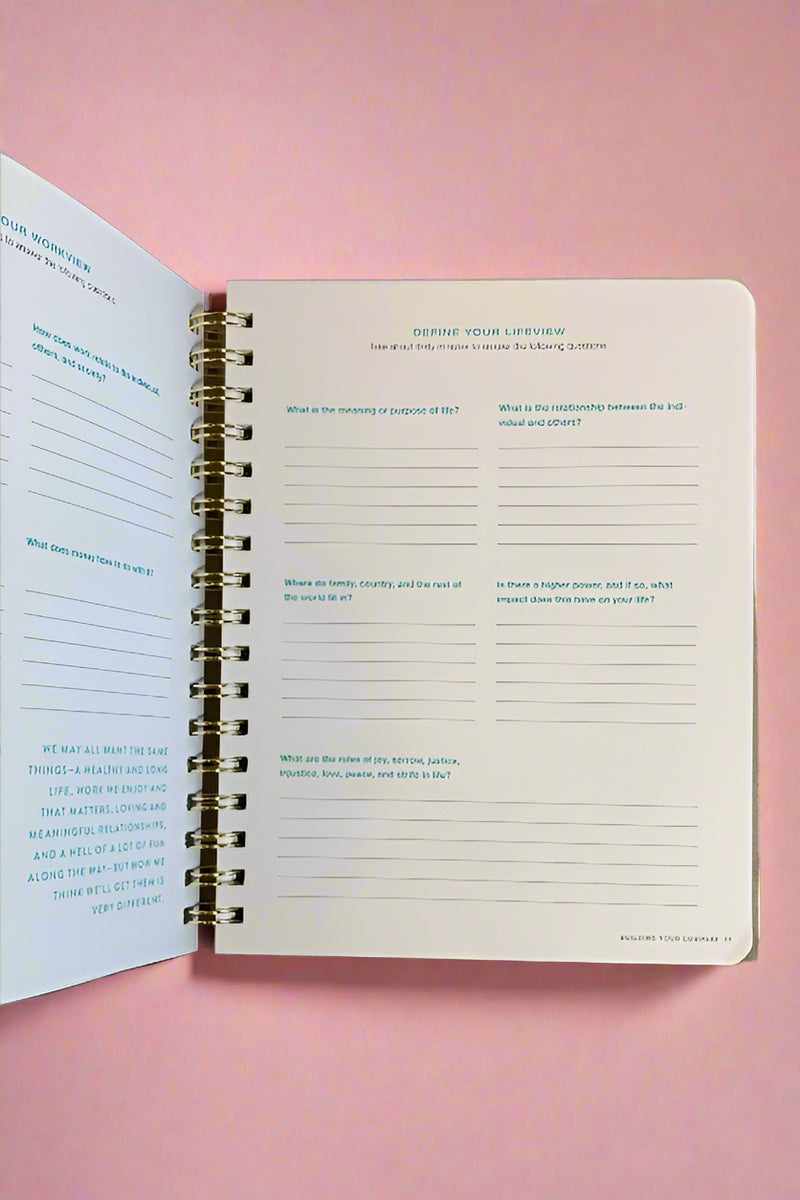 OUR WORKVIEW
to answer the following questions.
How does work relate to the individual,
others, and society?
What does money have to do with it?
WE MAY ALL WANT THE SAME
THINGS—A HEALTHY AND LONG
LIFE, WORK WE ENJOY AND
THAT MATTERS, LOVING AND
MEANINGFUL RELATIONSHIPS,
AND A HELL OF A LOT OF FUN
ALONG THE WAY—BUT HOW WE
THINK WE'LL GET THEM IS
VERY DIFFERENT.
DEFINE YOUR LIFEVIEW
Take about thirty minutes to answer the following questions.
What is the meaning or purpose of life?
What is the relationship between the indi-
vidual and others?
Where do family, country, and the rest of
the world fit in?
Is there a higher power, and if so, what
impact does this have on your life?
What are the roles of joy, sorrow, justice,
injustice, love, peace, and strife in life?
BUILDING YOUR COMPASS